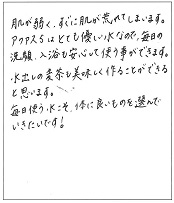 肌が弱く、すぐに肌が荒れてしまいます。
アクアス5はとても優しい水なので、毎日の
洗顔、入浴も安心して使う事ができます。
水出しの麦茶も美味しく作ることができる
と思います。
毎日使う水こそ、体に良いものを選んで
いきたいです!